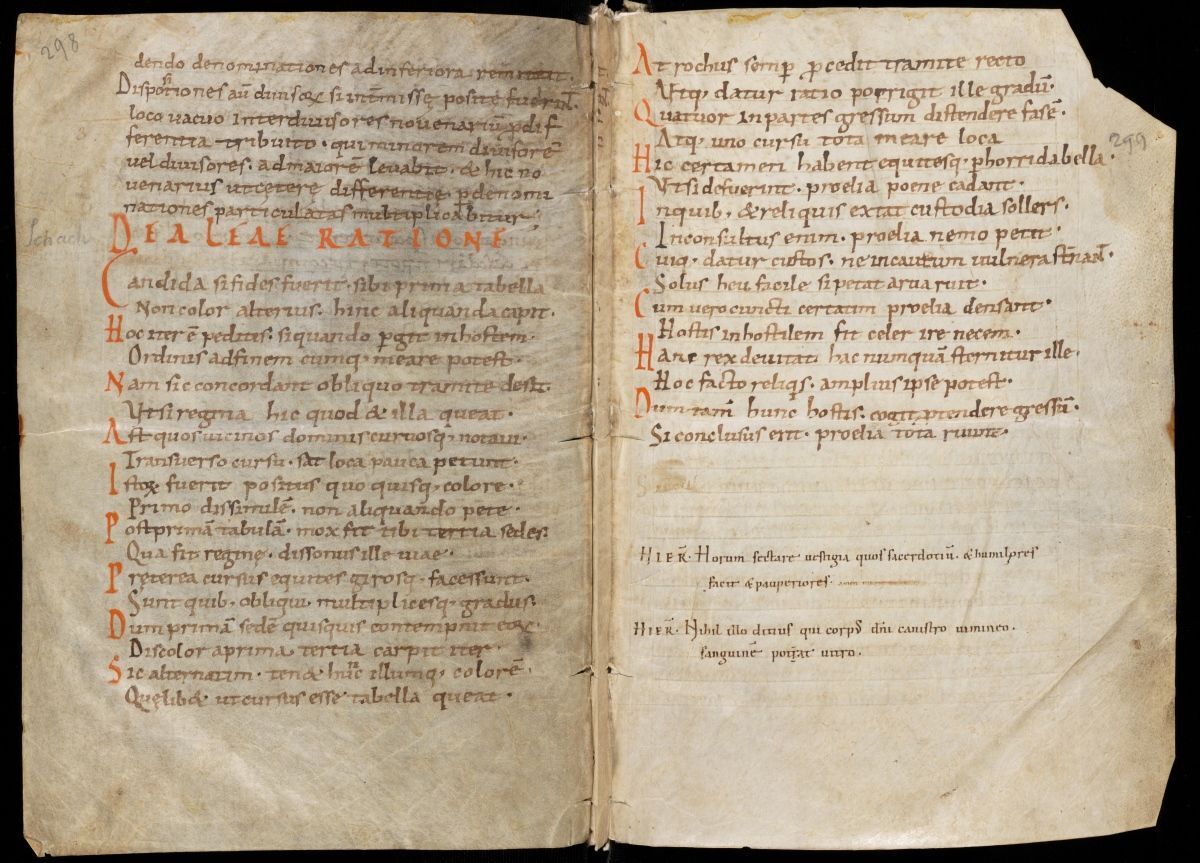 298
dendo denominationes ad inferiora remittat.
loco vacuo interdivisores novenariū ꝓ dif
ferentia tribuito. qui minorem divisorē
vel divisores. ad maiorē levabit. & hic no
venarius ut cęterę differentię ꝑ denomi
nationes particulatas multiplicabitur.
Schach
DE ALEAE RATIONE
Candida si fides fuerit. sibi prima tabella
Non color alterius. hinc aliquanda capit.
Hoc iter ē peditis. si quando ꝑgit in hostem.
Ordinis ad finem cumq; meare potest.
Nam sic concordant obliquo tramite
Ut si regina hic quod & illa queat.
Ast quos vicinos dominus curvosq; notavi.
Transverso cursu. sat loca pauca petunt.
Istoꝝ fuerit positus quo quisq; colore.
Primo dissimilē. non aliquando pete.
Post primā tabulā. mox fit tibi tertia sedes.
Qua fit reginę. dissonus ille viae.
Pręterea cursus equites girosq; facessunt.
Sunt quib; obliqui multiplicesq; gradus.
Dum primā sedē quisquis contempnit eoꝝ.
Discolor a prima tertia carpit iter.
Sic alternatim. tenet hunc illumq; colorē.
Quęlib& ut cursus esse tabella queat.
At rochus semp̄ ꝓcedit tramite recto
Utq; datur ratio porrigit ille gradū.
Quatuor in partes gressum distendere fasē.
Atq; uno cursu tota meare loca
Hic certamen habent equitesq; ꝑ horrida bella.
Ut si defuerint. proelia poene cadant.
In quib; & reliquis extat custodia sollers.
Inconsultus enim. proelia nemo petit.
Cuiq; datur custos. ne incautum vulnera
Solus heu facile si petat arva ruit.
Cum vero cuncti certatim proelia densant.
Hostis in hostilem fit celer ire necem.
Hanc rex devitat. hac numquā sternitur ille.
Hoc facto reliqs. amplius ipse potest.
Dum tam̄ hunc hostis. cogit ptendere gressū.
Si conclusus erit. proelia tota ruunt.
299
HIER̄. Horum sectare vestigia quos sacerdotiū. & humilores
facit & pauperiores.
HIER̄. Nihil illo ditius qui corpꝰ dn̄i canistro vimineo.
sanguinē portat vitro.